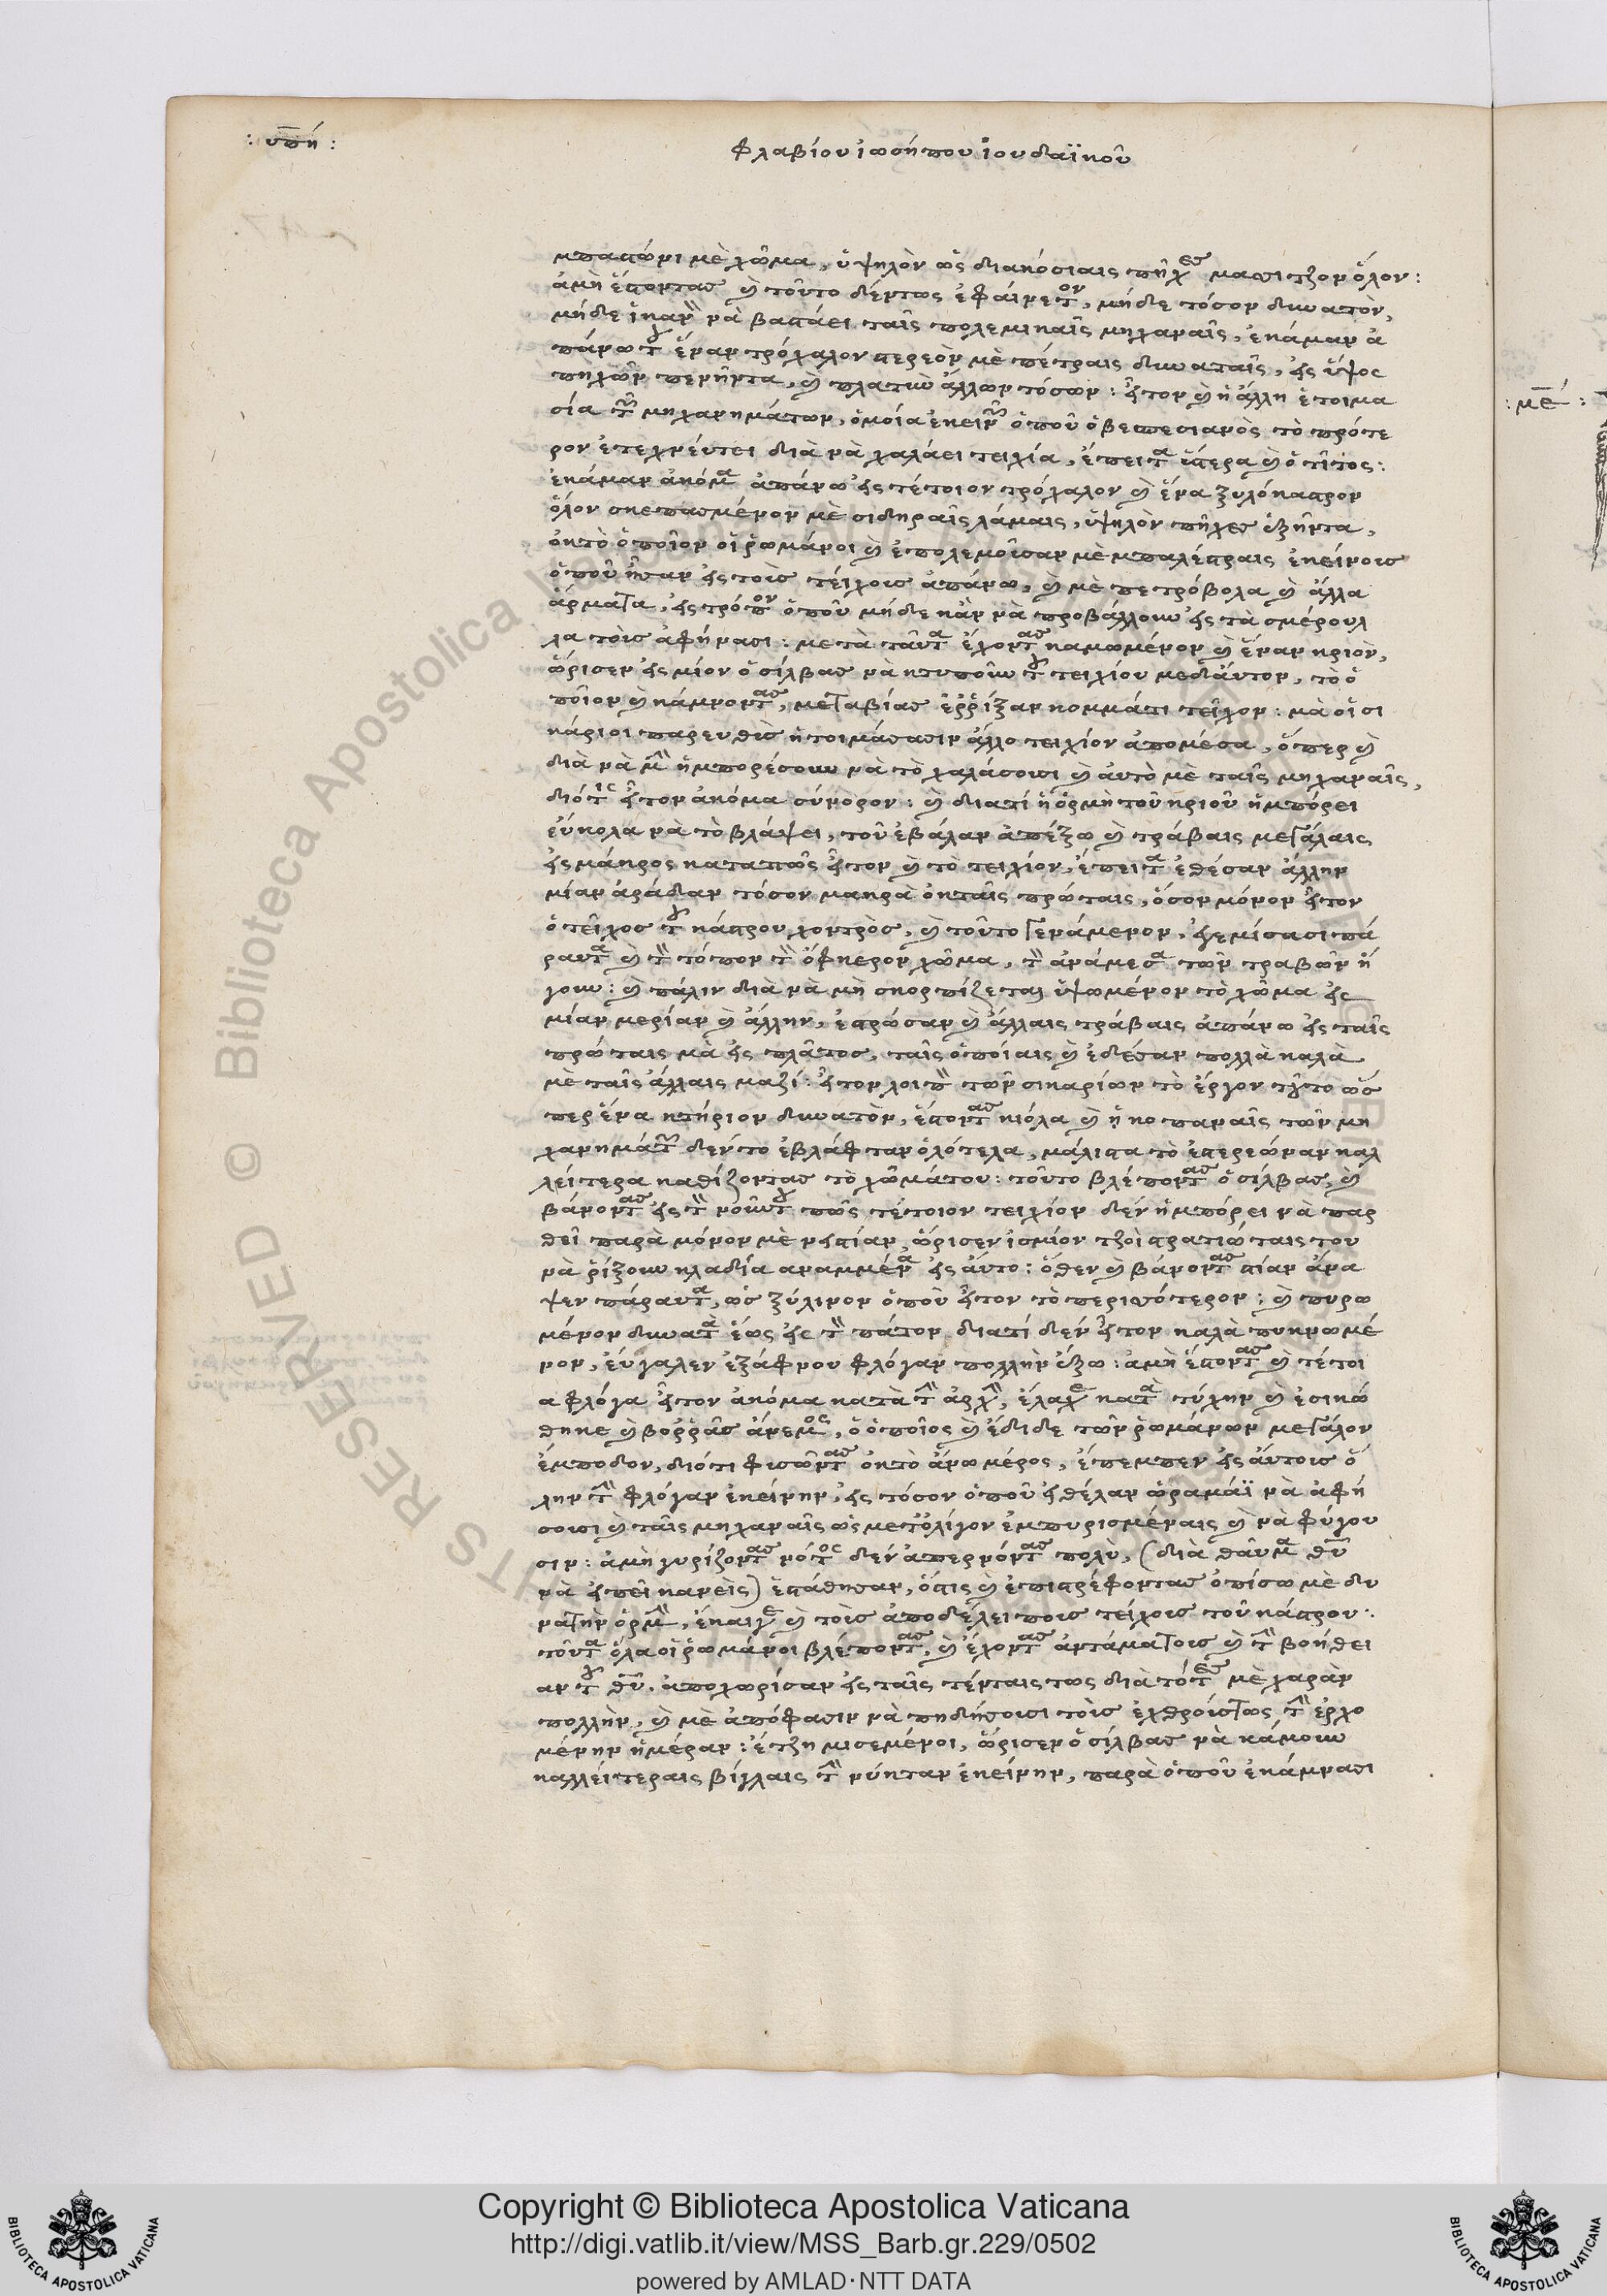 : υπη :
Φλαβίου ἰωσήπου ἰουδαϊκοῦ
μπαστώνι μὲ χῶμα, ὑψηλὸν ὡς διακόσιαις πῆχες μασιτζον ὅλον :
ἀμὴ ἔστοντας καὶ τοῦτο δέντως ἐφαίνετον, μήδε τόσον δυνατὸν,
μήδε ἱκανὸν νὰ βαστάει ταῖς πολεμικαῖς μηχαναῖς, ἐκάμαν ἀ
πάνω του ἕναν τρόχαλον στερεὸν μὲ πέτραις δυναταῖς, εἰς ὕψος
πηχῶν πενῆντα, καὶ πλατιὺ ἄλλων τόσων : ἦτον καὶ ἡ ἄλλη ἑτοιμα
σία τῶν μηχανημάτων, ὁμοία ἐκείνων ὁποῦ ὁ βεσπεσιανὸς τὸ πρότε
ρον ἐτεχνεύτει διὰ νὰ χαλάει τειχία, ἔπειτα ὕστερα καὶ ὁ τῖτος :
ἐκάμαν ἀκόμα ἀπάνω εἰς τέτοιον τρόχαλον καὶ ἕνα ξυλόκαστρον
ὅλον σκεπασμένον μὲ σιδηραῖς λάμαις, ὑψηλὸν πῆχες ἑξῆντα,
ὀκτὸ ὁποῖον οἱ ῥωμάνοι καὶ ἐπολεμοῦσαν μὲ μπαλέστραις ἐκείνοις
ὁποῦ ἦσαν εἰς τοὺς τείχους ἀπάνω, καὶ μὲ πετρόβολα καὶ ἄλλα
ἄρματα, εἰς τρόπον ὁποῦ μήδε κἂν νὰ προβάλλουν εἰς τὰ σμέρουλ
λα τοὺς ἀφήνασι : μετὰ ταῦτα ἔχοντας καμωμένον καὶ ἕναν κριὸν,
ὥρισεν εἰς μίον ὁ σίλβας νὰ κτυποῦν του τειχίου μεδαύτον, τὸ ὁ
ποῖον καὶ κάμνοντας, μεταβίας ἐῤῥίξαν κομμάτι τεῖχον : μὰ οἱ σι
κάριοι παρευθὺς ἡτοιμάσασιν ἄλλο τειχίον ἀπομέσα, ὅπερ καὶ
διὰ νὰ μὴν ἠμπορέσουν νὰ τὸ χαλάσουσι καὶ αὐτὸ μὲ ταῖς μηχαναῖς,
διότις ἦτον ἀκόμα σύνορον : καὶ διατί ἡ ὁρμὴ τοῦ κριοῦ ἠμπόρει
εὔκολα νὰ τὸ βλάψει, τοῦ ἐβάλαν ἀπέξω καὶ τράβαις μεγάλαις
εἰς μάκρος καταπῶς ἦτον καὶ τὸ τειχίον, ἔπειτα ἐθέσαν ἄλλην
μίαν ἀράδαν τόσον μακρὰ ὀκταῖς πρώταις, ὅσον μόνον ἦτον
ὁ τεῖχος του κάστρου χοντρὸς, καὶ τοῦτο γενάμενον, ἐγεμίσασι πά
ραυτα καὶ τὸν τόπον τὸν ὄφκερον χῶμα, τὸν ἀνάμεσα τῶν τραβῶν ἤ
γουν : καὶ πάλιν διὰ νὰ μὴ σκορπίζεται ὑψωμένον τὸ χῶμα εἰς
μίαν μερίαν καὶ ἄλλην, ἐστρώσαν καὶ ἄλλαις τράβαις ἀπάνω εἰς ταῖς
πρώταις μὰ εἰς πλᾶτος, ταῖς ὁποίαις καὶ ἐδέσαν πολλὰ καλὰ
μὲ ταῖς ἄλλαις μαζί : ἦτον λοιπὸν τῶν σικαρίων τὸ ἔργον τοῦτο ὥσ
περ ἕνα κτήριον δυνατὸν, ἔστοντας κιόλα καὶ ᾑ κοπαναῖς τῶν μη
χανημάτων δέντο ἐβλάφταν ὁλότελα, μάλιστα τὸ ἐστερεώναν καλ
λείτερα καθίζοντας τὸ χῶμάτου : τοῦτο βλέποντας ὁ σίλβας, καὶ
βάνοντας εἰς τὸν νοῦντου πῶς τέτοιον τειχίον δὲν ἠμπόρει νὰ παρ
θεῖ παρὰ μόνον μὲ νιστίαν, ὥρισεν ἰσμίον τζοὶ στρατιώταις του
νὰ ῥίξουν κλαδία αναμμένα εἰς αὐτο : ὅθεν καὶ βάνοντας στίαν ἄνα
ψεν πάραυτα, ὡς ξύλινον ὁποῦ ἦτον τὸ περισσότερον : καὶ πυρω
μένον δυνατὰ ἕως εἰς τὸν πάτον διατί δὲν ἦτον καλὰ πυκνωμέ
νον, εὔγαλεν ἐξάφνου φλόγαν πολλὴν ἔξω : ἀμὴ ἔστοντας καὶ τέτοι
α φλόγα ἦτον ἀκόμα κατὰ τὴν ἀρχὴν, ἔλαχε κατὰ τύχην καὶ ἐσικώ
θηκε καὶ βοῤῥᾶς ἄνεμος, ὁ ὁποῖος καὶ ἔδιδε τῶν ῥωμάνων μεγάλον
ἔμποδον, διότι φισῶντας ὀκτὸ ἄνω μέρος, ἔπεμπεν εἰς αὔτους ὅ
λην τὴν φλόγαν ἐκείνην, εἰς τόσον ὁποῦ ἐθέλαν ὡραμάϊ νὰ ἀφή
σουσι καὶ ταῖς μηχαναῖς ὡς μετ' ὀλίγον ἐμπυρισμέναις καὶ νὰ φύγου
σιν : ἀμὴ γυρίζοντας νότος δὲν ἀπερνόντας πολὺ, (διὰ θαῦμα θεοῦ
νὰ εἰπεῖ κανεὶς) ἐστάθηκαν, ὅστις καὶ ἐπιστρέφοντας ὀπίσω μὲ δυ
νατὴν ὁρμὴν, ἔκαιγε καὶ τοὺς ἀποδέλειπους τείχους τοῦ κάστρου :
τοῦτα ὅλα οἱ ῥωμάνοι βλέποντας, καὶ ἔχοντας ἀντάματους καὶ τὴν βοήθει
αν του θεοῦ, ἀποχωρίσαν εἰς ταῖς τένταις τως διὰ τότες μὲ χαρὰν
πολλὴν, καὶ μὲ ἀπόφασιν νὰ πηδήσουσι τοὺς ἐχθρούςτως τὴν ἐρχο
μένην ἡμέραν : ἔτζη μισεμένοι, ὥρισεν ὁ σίλβας νὰ κάμουν
καλλείτεραις βίγλαις τὴν νύκταν ἐκείνην, παρὰ ὁποῦ ἐκάμνασι
: με :
Copyright © Biblioteca Apostolica Vaticana
http://digi.vatlib.it/view/MSS_Barb.gr.229/0502
powered by AMLAD·NTT DATA